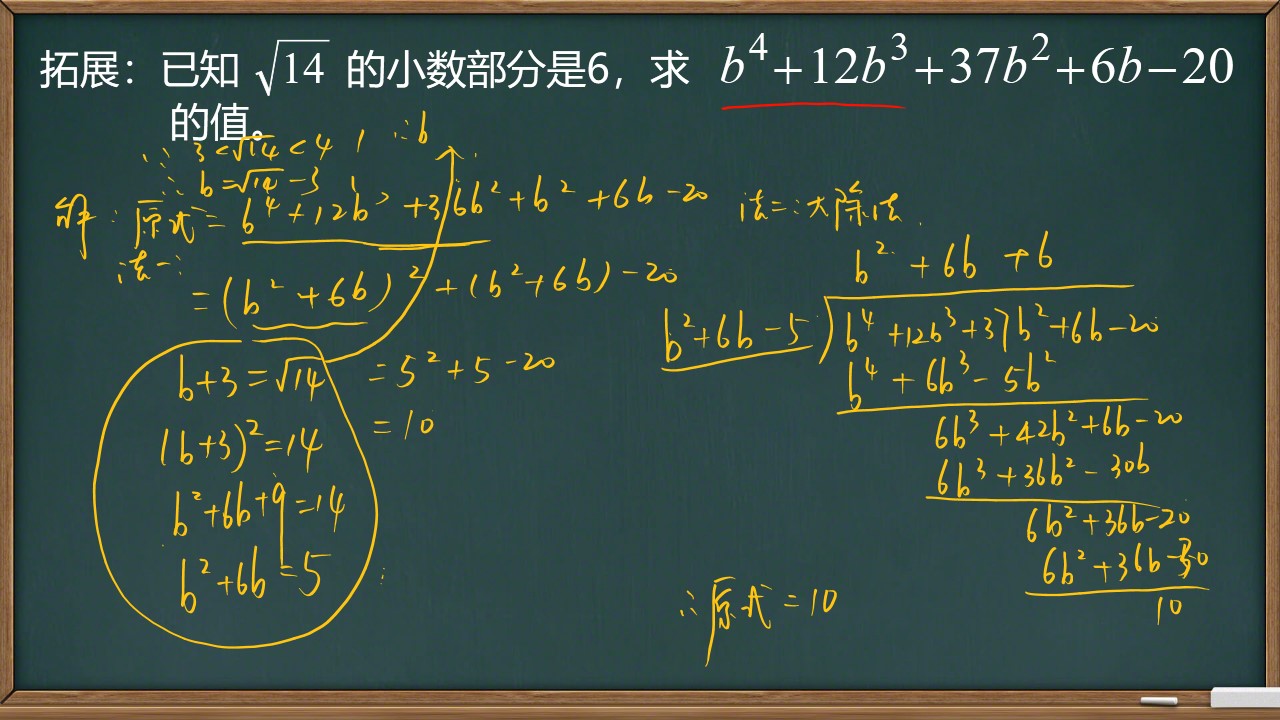 拓展：已知 √14 的小数部分是6，求 b⁴+12b³+37b²+6b−20
的值。
∵ 3<√14<4 ∴b
∴ b=√14−3
解：原式=b⁴+12b³+36b²+b²+6b−20
法一：
=(b²+6b)²+(b²+6b)−20
b+3=√14 =5²+5−20
(b+3)²=14 =10
b²+6b+9=14
b²+6b=5
法二：大除法
b²+6b+6
b²+6b−5 ) b⁴+12b³+37b²+6b−20
b⁴+6b³−5b²
6b³+42b²+6b−20
6b³+36b²−30b
6b²+36b−20
6b²+36b−30
10
∴原式=10